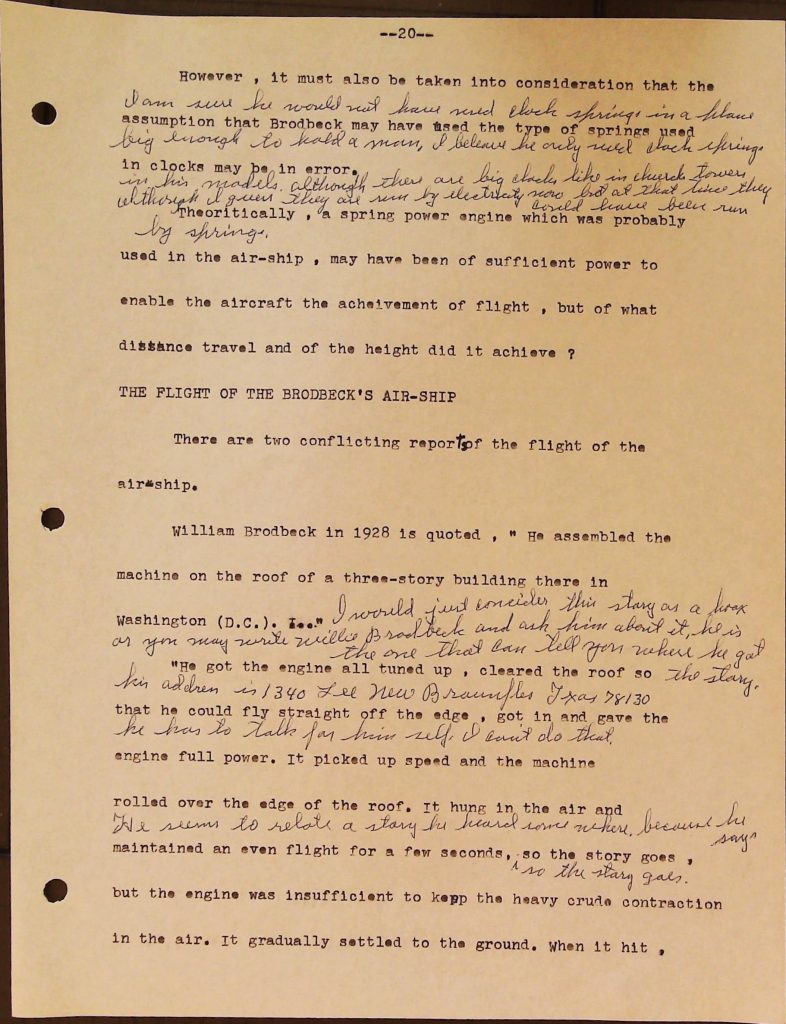 --20--
However , it must also be taken into consideration that the
I am sure he would not have used clock springs in a plane
assumption that Brodbeck may have used the type of springs used
big enough to hold a man, I beleave he only used clock springs
in clocks may be in error.
in his models. although there are big clocks like in church towers
although I guess they are run by electricity now but at that time they
could have been run
Theoritically , a spring power engine which was probably
by springs.
used in the air-ship , may have been of sufficient power to
enable the aircraft the acheivement of flight , but of what
distance travel and of the height did it achieve ?
THE FLIGHT OF THE BRODBECK'S AIR-SHIP
There are two conflicting reports of the flight of the
air-ship.
William Brodbeck in 1928 is quoted , " He assembled the
machine on the roof of a three-story building there in
Washington (D.C.). I.." I would just concider this story as a hoax
or you may write Willie Brodbeck and ask him about it, he is
the one that can tell you where he got
"He got the engine all tuned up , cleared the roof so the story.
his address is 1340 Lee New Braunfles Txas 78130
that he could fly straight off the edge , got in and gave the
he has to talk for him self. I can't do that.
engine full power. It picked up speed and the machine
rolled over the edge of the roof. It hung in the air and
He seems to relate a story he heard some where, because he
says
maintained an even flight for a few seconds, so the story goes ,
so the story goes.
but the engine was insufficient to kepp the heavy crude contraction
in the air. It gradually settled to the ground. When it hit ,